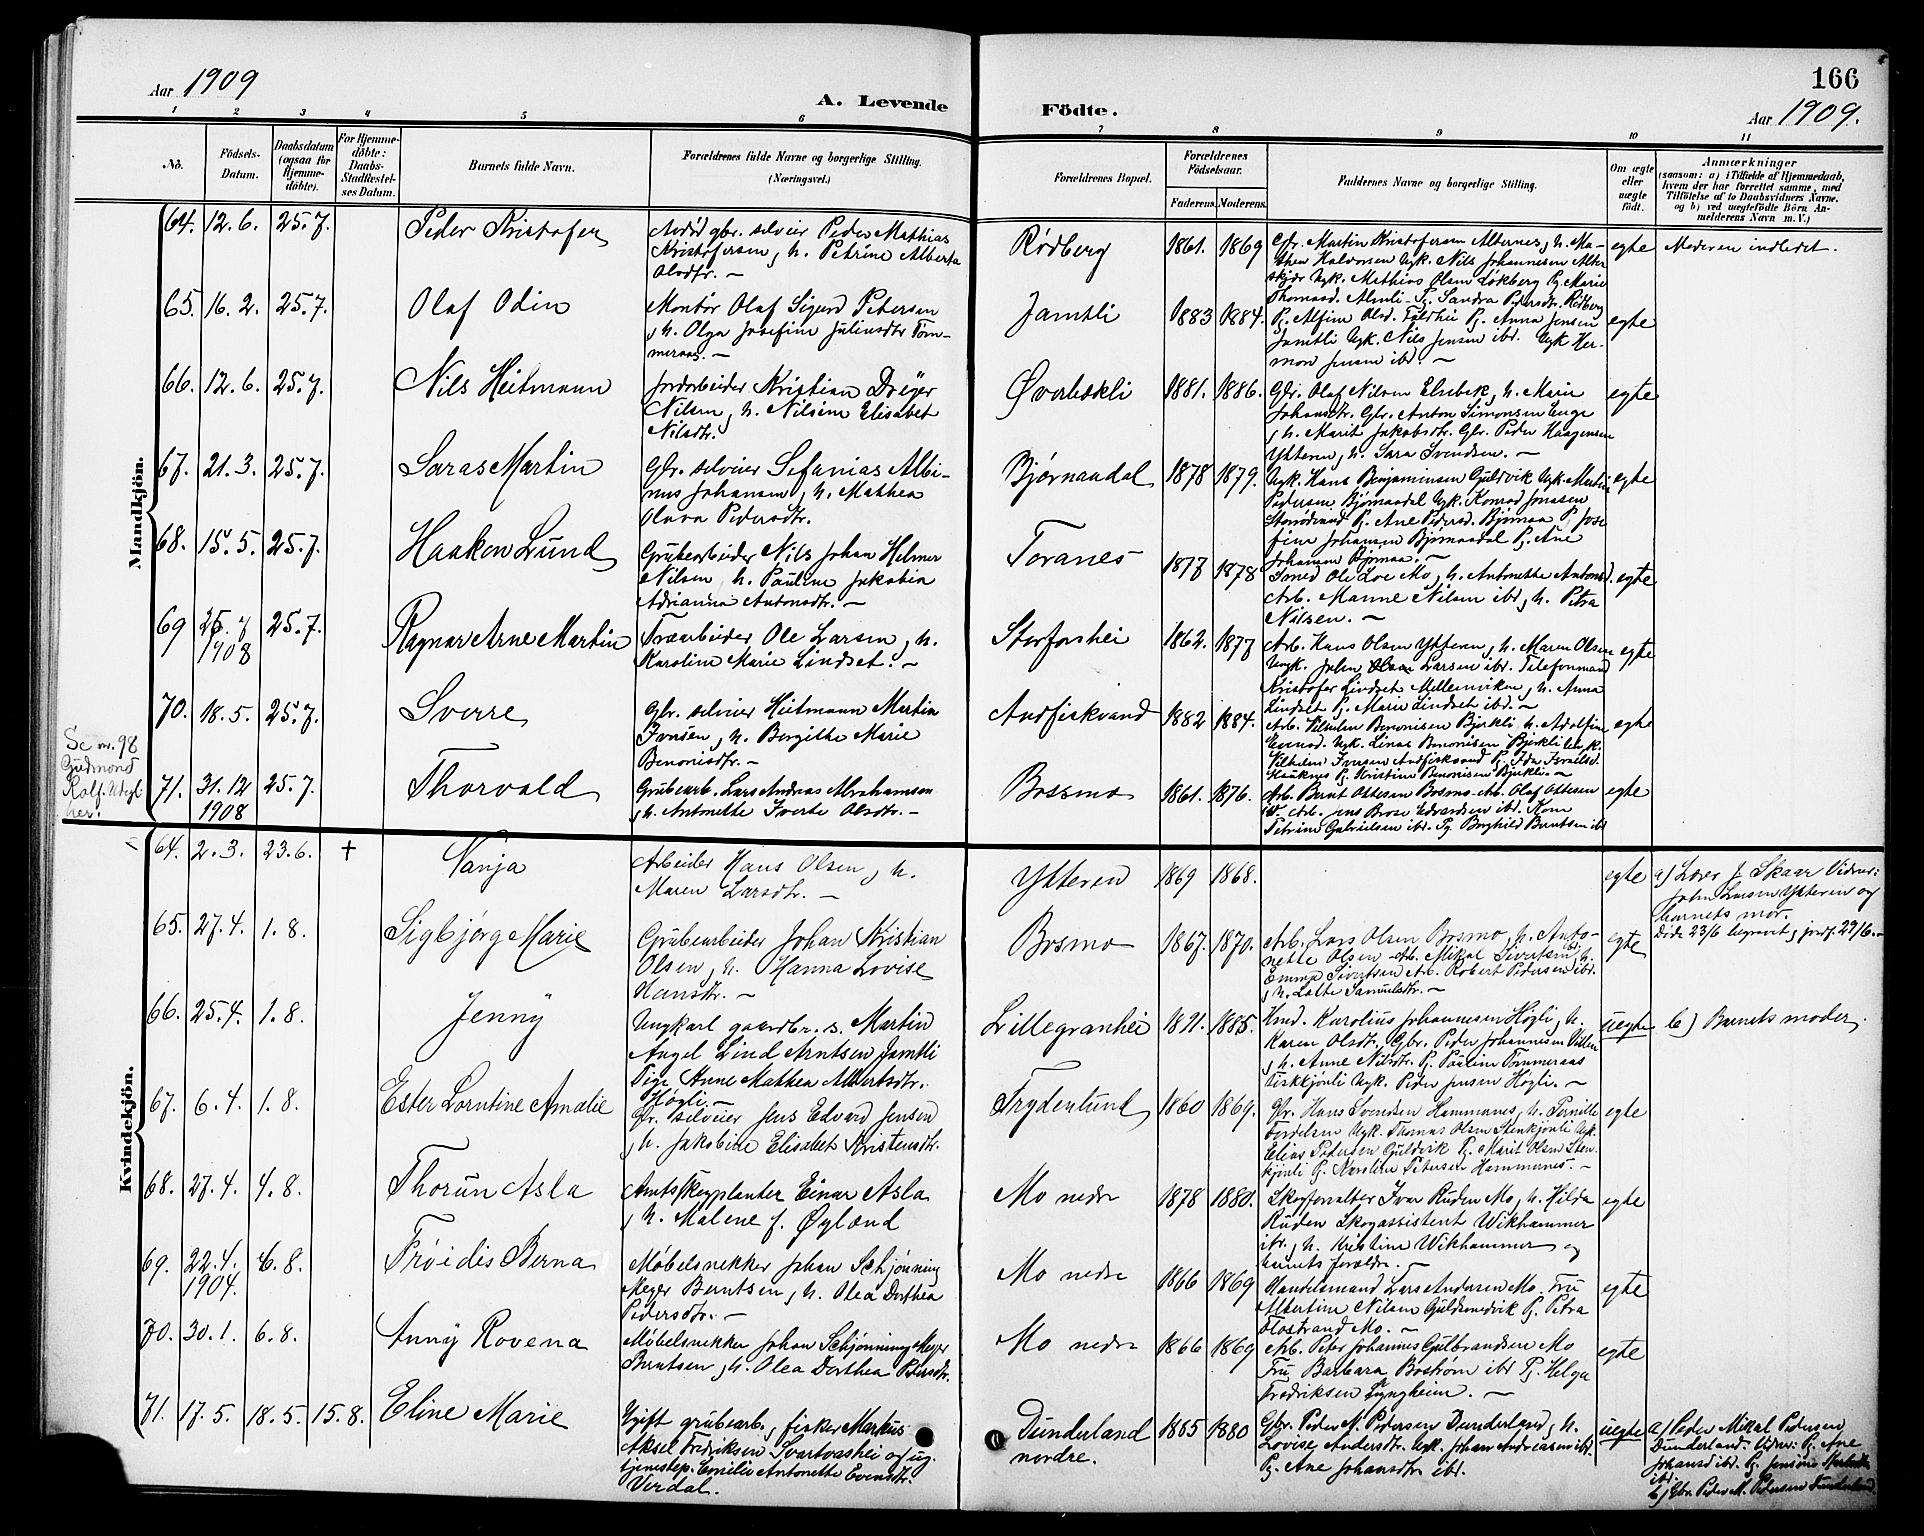 Aar 1909
A. Levende
Födte.
166
Aar 1909.
1 2 3 4 5 6 7 8 9 10 11
No.
Födsels-
Datum.
Daabsdatum
(ogsaa for
Hjemme-
døbte).
For Hjemme-
døbte:
Daabs-
Stadfæstel-
ses Datum.
Barnets fulde Navn.
Forældrenes fulde Navne og borgerlige Stilling.
(Næringsvei.)
Forældrenes Bopæl.
Forældrenes
Födselsaar.
Faderens. Moderens.
Faddernes Navne og borgerlige Stilling.
Om ægte
eller
uægte
født.
Anmærkninger
(saasom: a) i Tilfælde af Hjemmedaab,
hvem der har forrettet samme, med
Tilføielse af to Daabsvidners Navne.
og b) ved uægtefödte Börn An-
melderens Navn m. V.)
Mandkjön.
64. 12.6. 25.7. Peder Kristofer
gbr. selveier Peder Mathias
Kristofersen, h. Petrine Alberta
Olsdtr. —
Rödberg 1861. 1869
Gbr. Martin Kristofersen Alternes, h. Ma-
Halvorsen Ugk. Nils Johannesen Alter-
Ugk. Mathias Olsen Lökberg Pg. Marie
Thomasd. Almli Pg. Sandra Pedersdtr. Rödberg
egte Moderen indledet.
65. 16.2. 25.7. Olaf Odin
Montør Olaf Sigurd Petersen
h. Olga Josefine Juliusdtr Tøm-
meraas. —
Jamtli 1883 1884.
Pg. Alfine Olsd. Pg. Anna Jensen
Jamtli Ugk. Nils Jensen ibd. Ugk Her-
mon Jensen ibd. —
egte
66. 12.6. 25.7. Nils Heitmann
Jordarbeider Kristian Dreyer
Nilsen, h. Nilsine Elisabet
Nilsdtr.
Øverbækli 1881. 1886.
Gbr. Olaf Nilsen Elsbek, h. Marie
Johansdtr. Gbr. Anton Simonsen Enge
h. Marit Jakobsdtr. Gbr. Peder Haagensen
Ytteren, h. Sara Svendsen. —
egte
67. 21.3. 25.7. Saras Martin
Gbr. selveier Sefanias Albi-
nus Johansen, h. Mathea
Olava Pedersdtr.
Bjørnaadal 1878 1879.
Ugk. Hans Benjaminsen Guldvik Ugk. Martin
Pedersen Bjørnaadal Ugk. Konrad Jonassen
Pg. Ane Pedersd. Bjørnaa Pg. Jose-
fine Johansen Bjørnaadal Pg. Ane
Johansen Bjørnaa. —
egte
68. 15.5. 25.7. Haakon Lund
Grubearbeider Nils Johan Helmer
Nilsen, h. Pauline Jakobia
Adrianna Antonsdtr. —
Toranes 1877 1878
Smed Ole Loe Mo, h. Antonette Antonsd.
Arb. Manne Nilsen ibd, h. Petra
Nilsen. —
egte
69 25.7 1908 25.7. Ragnar Arne Martin
Træarbeider Ole Larsen, h.
Karoline Marie Lindset. —
Storforshei 1862. 1877
Arb. Hans Olsen Ytteren, h. Maren Olsen
Ugk. John Larsen ibd. Telefonmand
Kristofer Lindset Mellemviken, h. Anna
Lindset Pg. Marie Lindset ibd. —
egte
70. 18.5. 25.7 Sverre
Gbr. selveier Heitmann Martin
Iversen, h. Bergithe Marie
Benonisdtr. —
Andfiskvand 1882 1884.
Arb. Vilhelm Benonisen Bjerkli, h. Adolfine
Ugk. Linas Benonisen Bjerkli Ugk.
Vilhelm Iversen Andfiskvand Pg. Ida Israelsd.
Hauknes Pg. Kristine Benonisen Bjerkli. —
egte
Se nr. 98
Gudmund
Rolf.
her!
71. 31.12 1908 25.7. Thorvald
Grubearb. Lars Andreas Abrahamsen
h. Antonette Iverte Olsdtr. —
Bossmo 1861. 1876.
Arb. Bernt Ottesen Bosmo. Arb. Olaf Ottesen
Arb. Jens Brose Edvardsen ibd. Kone
Petrine Gabrielsen ibd. Pg. Borghild Berntsen ibd
egte
Kvindekjön.
64. 2.3. 23.6. + Vanja
Arbeider Hans Olsen, h.
Maren Larsdtr. —
Ytteren 1869 1868.
egte
a) Lærer J. Skaar Vidner:
John Larsen Ytteren og
barnets mor.
Döde 23/6 begravet, jordf. 29/6. —
65. 27.4. 1.8. Sigbjørg Marie
Grubearbeider Johan Kristian
Olsen, h. Hanna Lovise
Hansdtr. —
Bosmo 1867. 1870.
Arb. Lars Olsen Bosmo, h. Anto-
nette Olsen Arb. Mikal Sivertsen h.
Emma Sivertsen Arb. Robert Pedersen ibd.
h. Lotte Samuelsdtr. —
egte
66. 25.4. 1.8. Jenny
Ungkarl gaardbr. s. Martin
Angel Lind Arntsen Jamtli
Pige Anne Mathea Albertsdtr.
Høgli. —
Lillegranhei 1891. 1885.
Karolius Johannesen Högli, h.
Karen Olsdtr, Gbr. Peder Johannesen
h. Anne Nilsdtr. Pg. Pauline Tømmeraas
Fiskkjønli Ugk. Peder Jensen Högli. —
uegte b) Barnets moder.
67. 6.4. 1.8. Ester Lorntine Amalie
Gbr. selveier Jens Edvard Jensen
h. Jakobine Elisabet Kristensdtr.
Frydenlund 1860 1869.
Gbr. Hans Svendsen Hammernes, h. Pernille
Ugk. Thomas Olsen Stenkjønli Ugk.
Elias Pedersen Guldvik Pg. Marit Olsen Sten-
kjønli Pg. Karoline Petersen Hammernes. —
egte
68. 27.4. 4.8. Thorun Asla
Amtsskogplanter Einar Asla
h. Malene f. Øgland
Mo nedre 1878 1880.
Skogforvalter Ivar Ruden Mo, h. Hilda
Ruden Skogassistent Wikhammer
ibd., h. Kristine Wikhammer og
barnets forældre. —
egte
69. 22.4. 1904. 6.8. Frøidis Berna
Møbelsnekker Johan Schjønning
Meyer Berntsen, h. Olea Dorthea
Pedersdtr. —
Mo nedre 1866 1869
Handelsmand Lars Andersen Mo, Fru
Albertine Nilsen Guldsmedvik Pg. Petra
Flostrand Mo. —
egte
70. 30.1. 6.8. Anny Rovena
Møbelsnekker Johan Schjønning Meyer
Berntsen, h. Olea Dorthea Pedersdtr.
Mo nedre 1866 1869
Arb. Peter Johannes Gulbrandsen Mo
Fru Barbara Boström ibd Pg. Helga
Fredriksen Lyngheim. —
egte
71. 17.5. 18.5. 15.8. Eline Marie
Ugift grubearb., fisker Markus
Aksel Fredriksen Svartvashei og ug.
tjenestep. Emilie Antonette Evensdtr.
Virdal.
Dunderland
nordre. 1885 1880
Gbr. Peder M. Pedersen Dunderland, h.
Lovise Andersdtr. Ugk. Johan Andreassen ibd.
Pg. Ane Johansdtr ibd.
uegte
a) Peder Mikal Pedersen
Dunderland. Vidner: Pg. Ane
Johansd ibd. Pg. Jensine
ibd.
b) Gbr. Peder M. Pedersen Dunderland.